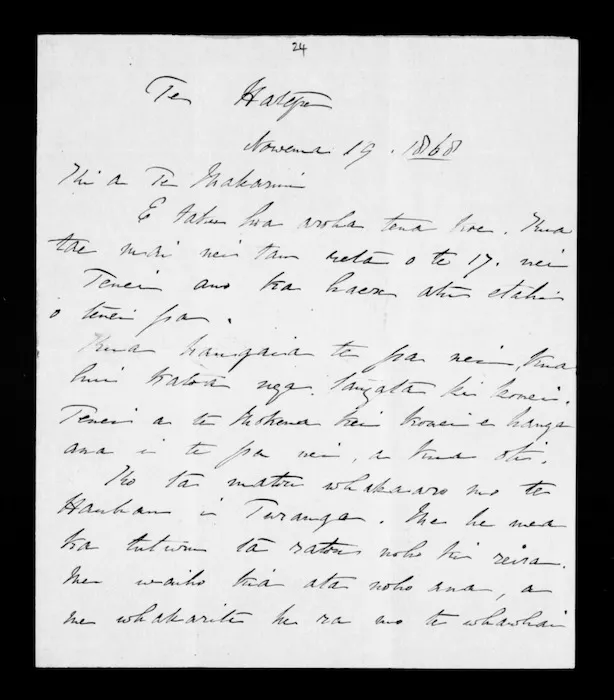 24
Te Hatepe
Nowema 19. 1868
Ki a Te Makarini
E taku hoa aroha tena koe. Kua
tae mai nei tau reta o te 17. nei
Tenei ano ka haere atu etahi
o tenei pa.
Kua hangaia te pa nei, kua
hui katoa nga tangata ki konei.
Tenei a te Mokena kei konei e hanga
ana i te pa nei, a kua oti.
Ko ta matou whakaaro mo te
Hauhau i Turanga. Me he mea
ka tuturu ta ratou noho ki reira.
Me waiho kia ata noho ana, a
me whakarite he ra mo te whawhai